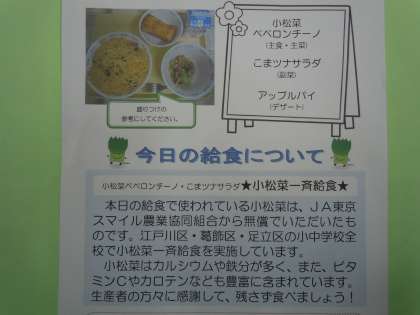 小松菜
ペペロンチーノ
(主食・主菜)
こまツナサラダ
(副菜)
アップルパイ
(デザート)
盛りつけの
参考にしてください。
今日の給食について
小松菜ペペロンチーノ・こまツナサラダ★小松菜一斉給食★
本日の給食で使われている小松菜は、JA東京
スマイル農業協同組合から無償でいただいたも
のです。江戸川区・葛飾区・足立区の小中学校全
校で小松菜一斉給食を実施しています。
小松菜はカルシウムや鉄分が多く、また、ビタ
ミンCやカロテンなども豊富に含まれています。
生産者の方々に感謝して、残さず食べましょう!